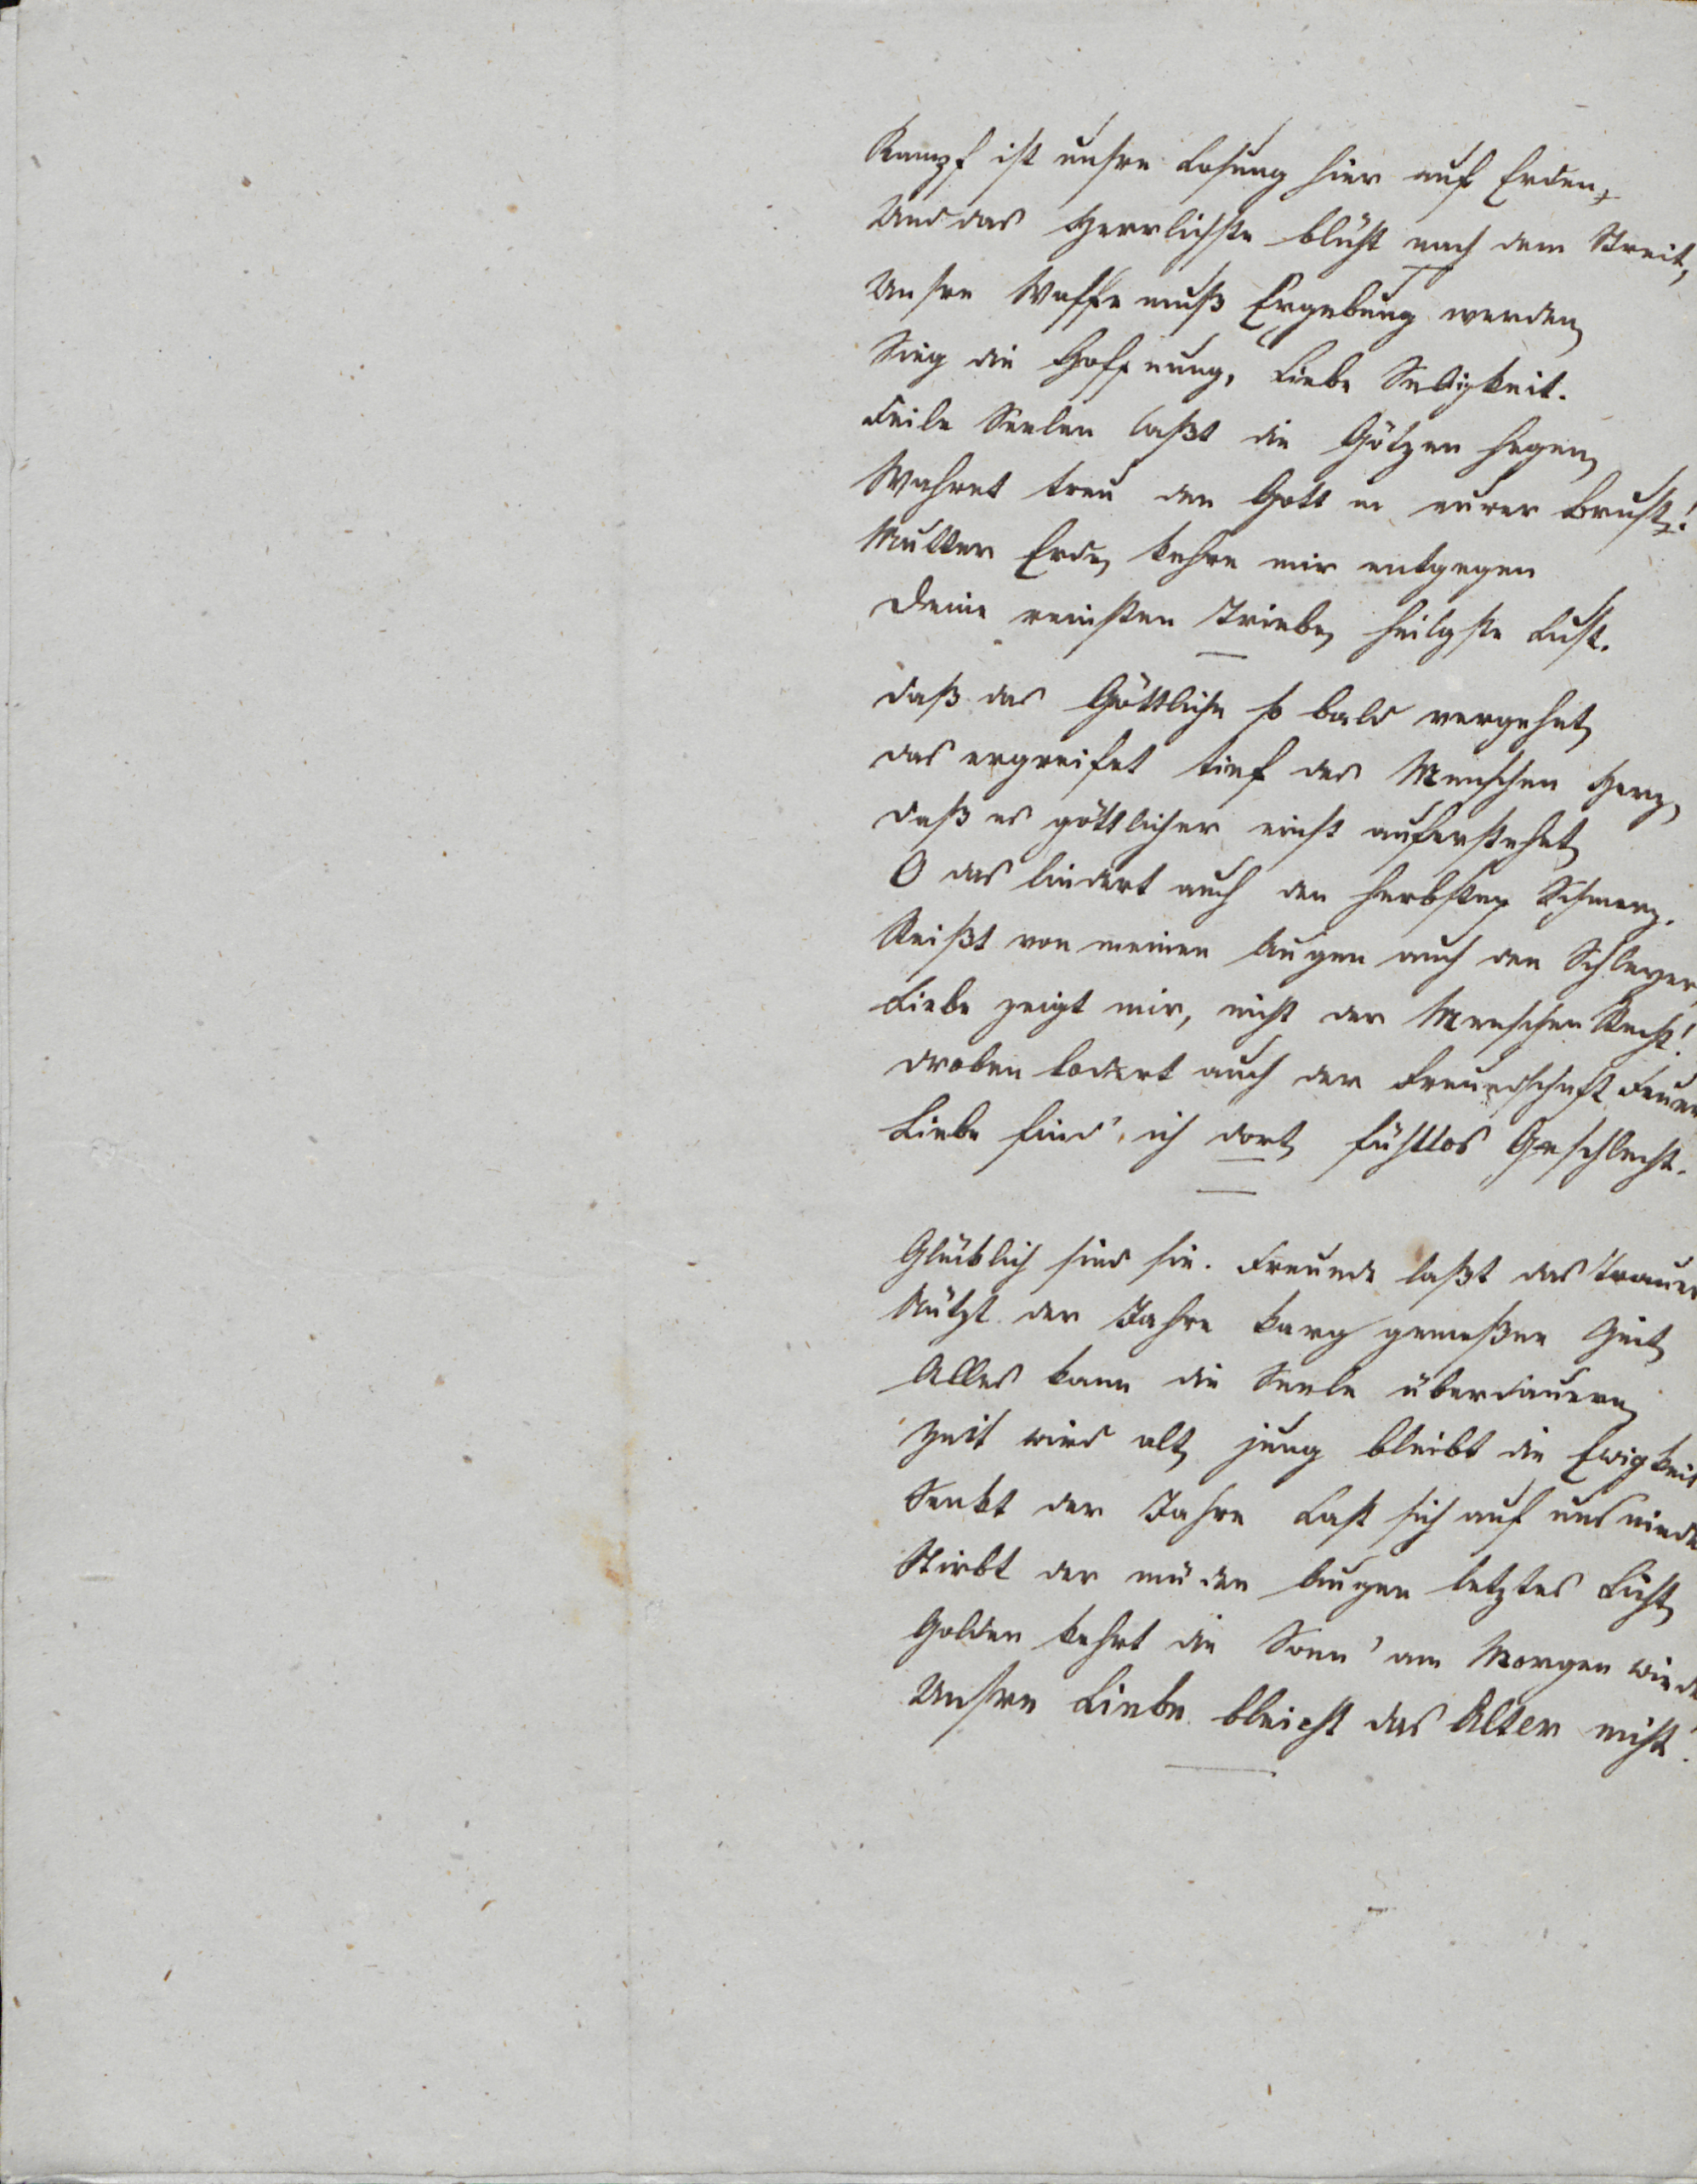 Kampf ist unsre Losung hier auf Erden,
Und das Herrlichste blüht nach dem Streit,
Unsre Waffe muß Ergebung werden,
Sieg die Hoffnung, Liebe Seligkeit.
Feile Seelen laßt die Götzen hegen,
Wahret treu den Gott in eurer Brust!
Mutter Erde, kehre mir entgegen
Deine reinsten Triebe, heilgste Lust.
Daß das Göttliche so bald vergehet,
das ergreifet tief des Menschen Herz,
Daß es göttlicher einst auferstehet,
O das lindert auch den herbsten Schmerz.
Reißt von meinen Augen auch den Schleyer,
Liebe zeigt mir, nicht der Menschen Recht!
Droben lodert auch der Freundschaft Feuer
Liebe find' ich dort, fühllos Geschlecht.
Glüklich sind sie. Freunde laßt das Trauern
Nützt der Jahre karg gemeßne Zeit,
Alles kann die Seele überdauern,
Zeit wird alt, jung bleibt die Ewigkeit
Senkt der Jahre Last sich auf uns nieder
Stirbt der müden Augen letztes Licht,
Golden kehrt die Sonn' am Morgen wieder
Unsre Liebe bleicht das Alter nicht.